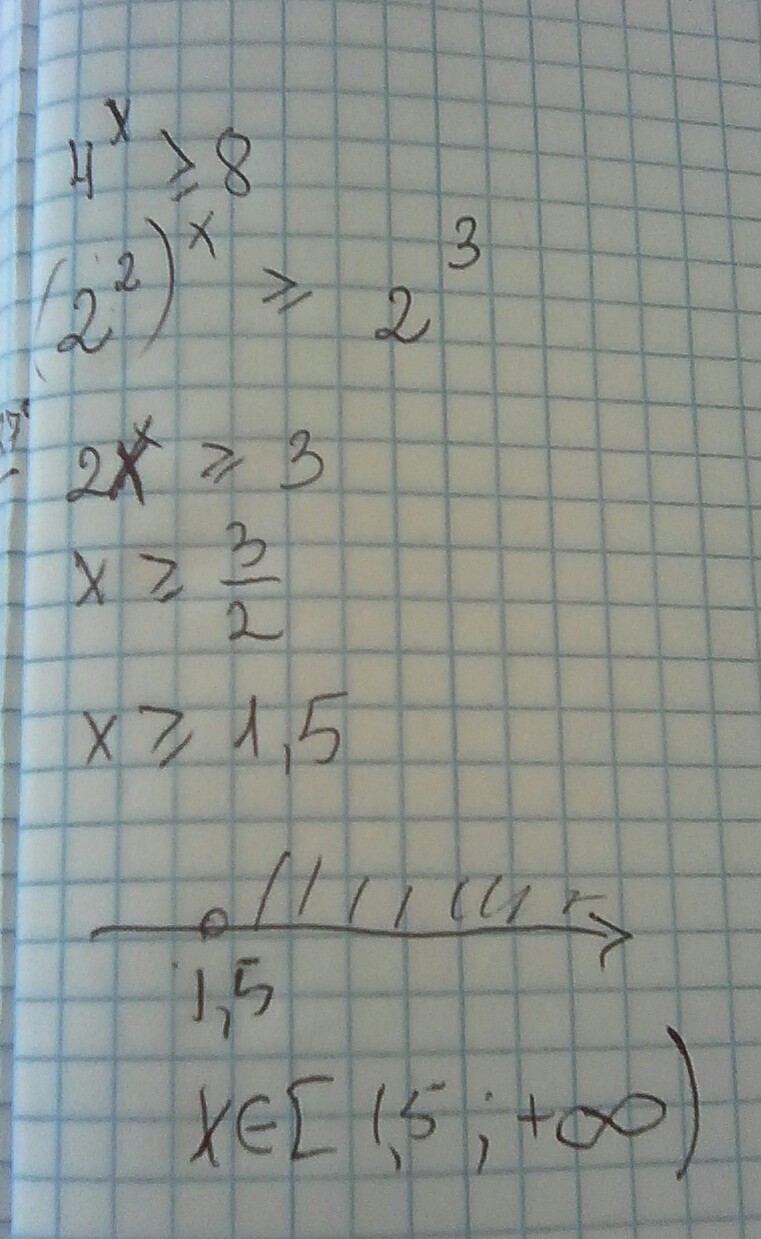 4^x ≥ 8
(2^2)^x ≥ 2^3
2x ≥ 3
x ≥ 3/2
x ≥ 1,5
1,5
x∈[1,5; +∞)